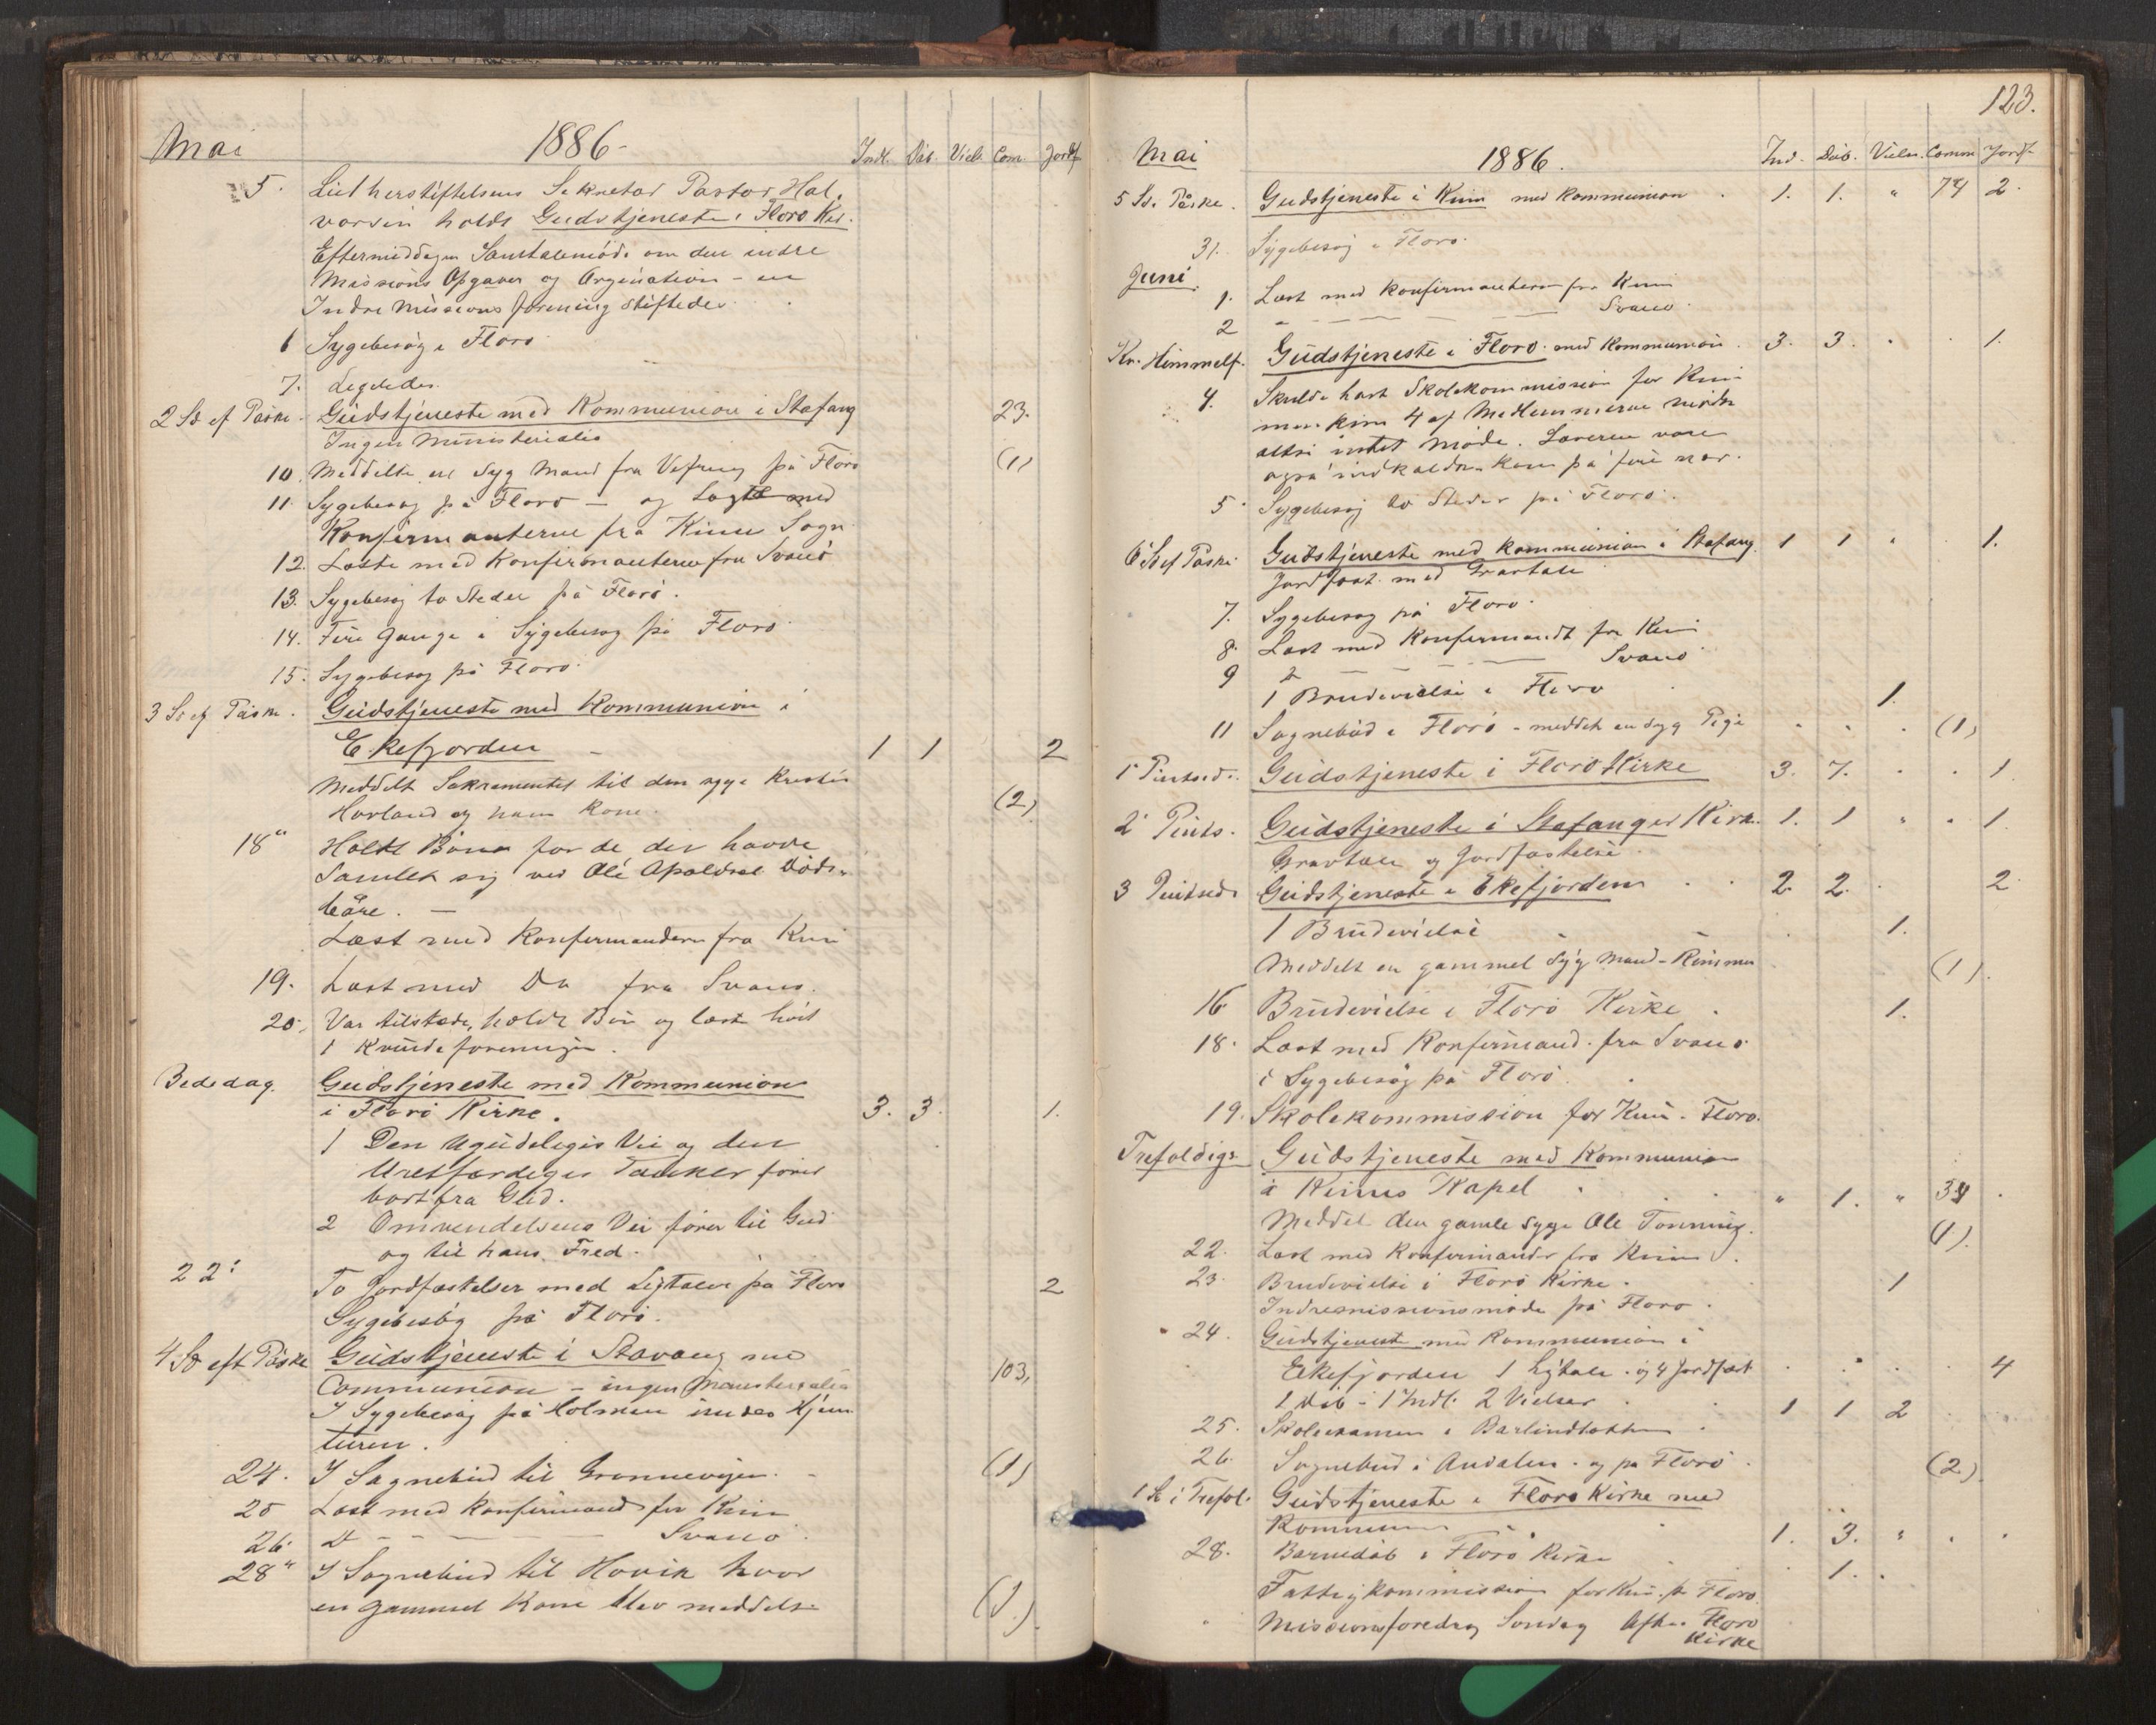 Mai 1886 - Indl. Dåb. Vielr. Com. Jordf.
5. Lutherstiftelsens Sekretær Pastor Hal,
vorsen holdt Gudstjeneste i Florø Kir.
Eftermiddagen Samtalemøde om den indre
Missions Opgaver og Organisation - en
Indre Missions forening stiftedes.
6 Sygebesøg i Florø
7. Ligeledes.
2 Sd ef Påske. Gudstjeneste med Kommunion i Stafang 23.
Ingen Ministerialia
10. Meddelte en Syg Mand fra Vefring på Florø (1)
11. Sygebesøg på Florø - og Læste med
Konfirmanterne fra Kinn Sogn
12. Læste med Konfirmanterne fra Svanø
13. Sygebesøg to Steder på Florø.
14. Fire Gange i Sygebesøg på Florø
15. Sygebesøg på Florø.
3 Sd ef Påske. Gudstjeneste med Kommunion i
Ekefjorden - 1 1 2
Meddelt Sakramentet til den syge Kristen
Hovland og hans Kone. (2)
18" Holdt Bøn for de der havde
Samlet sig ved Ole Apaldset Døds-
båre. -
Læst med Konfirmandern fra Kinn
19. Læst med Do fra Svanø.
20. Var tilstede, holdt Bøn og læste høit
i Kvindeforeningen.
Bededag. Gudstjeneste med Kommunion
i Florø Kirke. 3. 3. 1.
1 Den Ugudeliges Vei og den
Uretfærdiges Tanker fører
bort fra Gud.
2 Omvendelsens Vei fører til Gud
og til hans Fred.
22: To Jordfæstelser med Ligtaler på Florø 2
Sygebesøg på Florø.
4 Sd eft Påske Gudstjeneste i Stavang med
Communion - ingen Ministerialia 103,
I Sygebesøg på Holmen under Hjem
turen.
24. I Sognebud til Grønnevigen. - (1)
25 Læst med Konfirmand fra Kinn
26. Do - - - Svanø.
28" I Sognebud til Hovik hvor
en gammel Kone blev meddelt (1.)
123.
Mai 1886. Ind. Dåb. Vielse. Comm Jordf.
5 Sd. Påske. Gudstjeneste i Kinn med Kommunion. 1. 1. " 74 2.
31. Sygebesøg i Florø.
Juni.
1. Læst med Konfirmanterne fra Kinn
2 " - - - Svanø.
Kr. Himmelf. Gudstjeneste i Florø. med Kommunion. 3. 3. . . 1.
4. Skulde havt Skolekommission for Kinn
men kun 4 af Medlemmerne mødte
altså intet Møde. Lærerne vare
også indkaldte. Kom på fire nær.
5. Sygebesøg to Steder på Florø.
6 Sd ef Påske. Gudstjeneste med Kommunion i Stafang. 1 1 " . 1.
Jordfæst. med Gravtale
7. Sygebesøg på Florø.
8. Læst med Konfirmandt fra Kinn
9 Do - - - Svanø
1 Brudevielse i Florø . 1.
11 Sognebud i Florø - meddelt en syg Pige . . . (1)
1 Pintsed. Gudstjeneste i Florø Kirke 3. 7. . . 1
2 Pints. Gudstjeneste i Stafanger Kirk. 1. 1 " . 1.
Gravtale og Jordfæstelse.
3 Pintsed. Gudstjeneste i Ekefjorden . . 2 2. . 2
1 Brudevielse . 1.
Meddelt en gammel Syg Mand - (1).
16 Brudevielse i Florø Kirke . 1.
18. Læst med Konfirmand. fra Svanø
i Sygebesøg på Florø.
19. Skolekommission for Kinn. Florø.
Trefoldigs Gudstjeneste med Kommunion
i Kinns Kapel . " 1. " 34 .
Meddel den gamle syge Ole Tonning. (1).
22. Læst med Konfirmander fra Kinn.
23. Brudevielse i Florø Kirke. 1
Indremissionsmøde på Florø.
24. Gudstjeneste med Kommunion i
Ekefjorden 1 Ligtale. og 4 Jordfæst . . . . 4
1 Dåb - 1 Indl. 2 Vielser . 1 1 2
25. Skoleexamen i Barlindbotten
26. Sognebud i Andalen. og på Florø . (2).
1 S. i Trefol. Gudstjeneste i Florø Kirke med
Kommunion 1. 3. " . .
28. Barnedåb i Florø Kirke . 1. .
Fattigkommission for Kinn. på Florø.
Missionsforedrag Søndag Aften Florø
Kirke